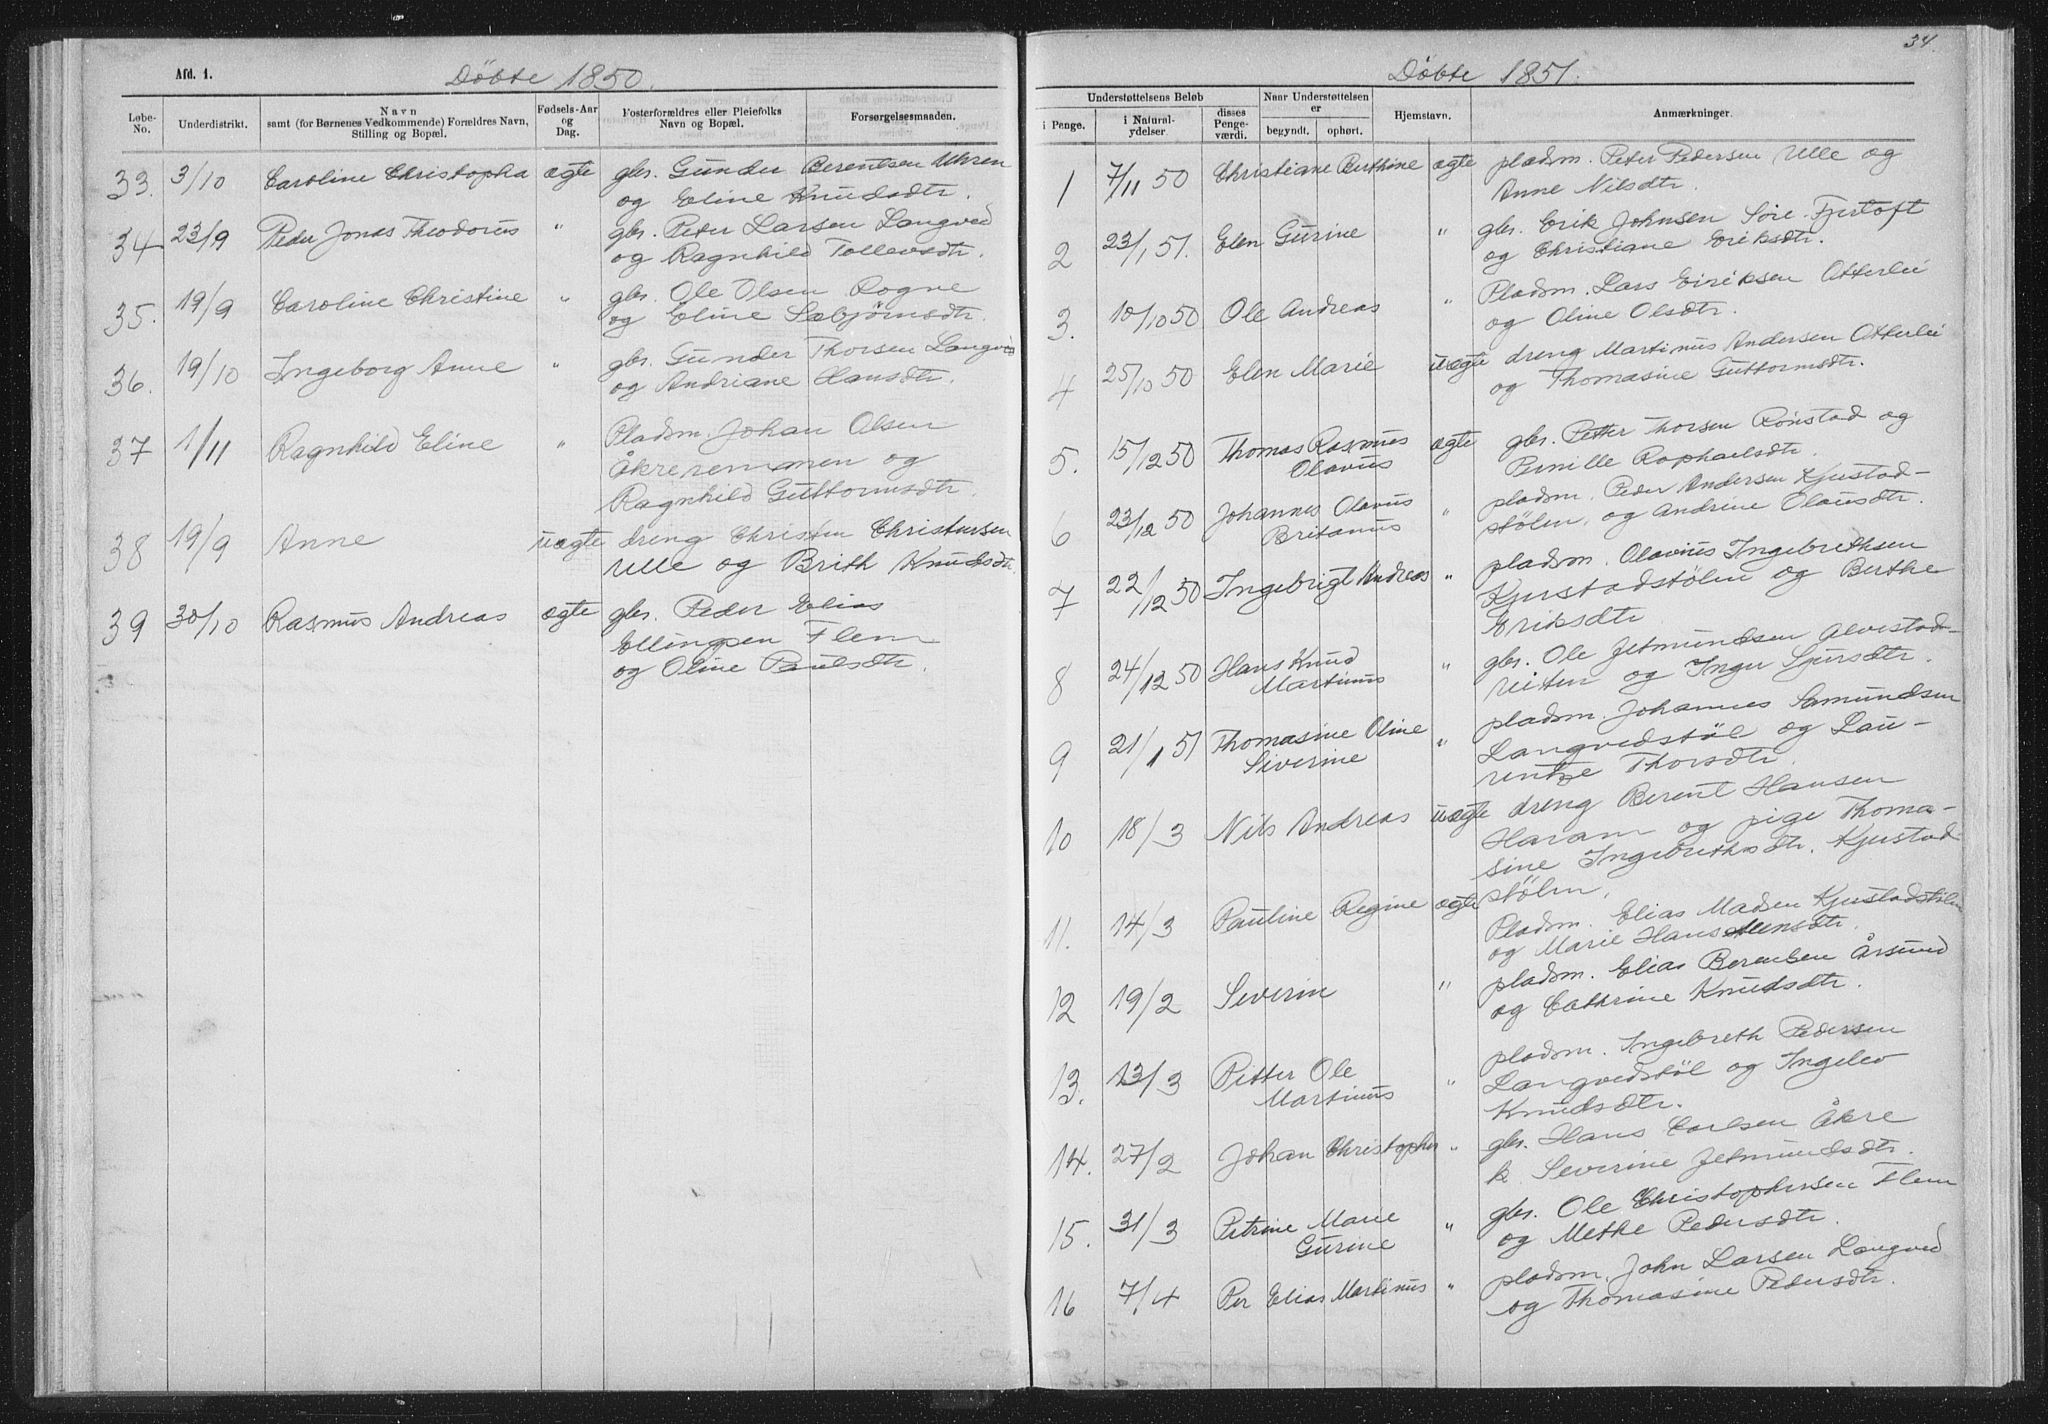 Afd. 1.
Døbte 1850.
Løbe-No.
Underdistrikt.
Navn
samt (for Børnenes Vedkommende) Forældres Navn,
Stilling og Bopæl.
Fødsels-Aar
og
Dag.
Fosterforældres eller Pleiefolks
Navn og Bopæl.
Forsørgelsesmaaden.
33. 3/10 Caroline Christopha ægte gbr. Gunder Berentsen Uhren
og Eline Knudsdtr.
34 23/9 Peder Jonas Theodorus " gbr. Peter Larsen Langved
og Ragnhild Tollevsdtr.
35. 19/9 Caroline Christine " gbr. Ole Olsen Rogne
og Eline Sæbjørnsdtr.
36. 19/10 Ingeborg Anne " gbr. Gunder Thorsen Langved
og Andriane Hansdtr.
37 1/11 Ragnhild Eline " Pladsm. Johan Olsen
Åkreremanen og
Ragnhild Guttormsdtr.
38 19/9 Anne uægte dreng Christen Christensen
Ulle og Brith Knudsdtr.
39 30/10 Rasmus Andreas ægte gbr. Peder Elias
Ellingsen Flem
og Oline Paulsdtr.
34.
Døbte 1851.
Understøttelsens Beløb
i Penge.
i Natural-
ydelser
disses
Penge-
værdi.
Naar Understøttelsen
er
begyndt.
ophørt.
Hjemstavn.
Anmærkninger.
1 7/11 50 Christiane Berthine ægte pladsm. Peter Pedersen Ulle og
Anne Nilsdtr.
2 23/1 51. Elen Gurine " gbr. Erik Johnsen Søre-Fjertoft
og Christiane Eriksdtr.
3. 10/10 50 Ole Andreas " Pladsm. Lars Eiriksen Otterlei
og Oline Olsdtr.
4 25/10 50 Elen Marie uægte dreng Martinus Andersen Otterlei
og Thomasine Guttormsdtr.
5. 15/12 50 Thomas Rasmus ægte gbr. Petter Thorsen Rønstad og
Olavus Pernille Raphaelsdtr.
6 23/12 50 Johannes Olavus " pladsm. Peder Andersen Kjerstad-
Britanus stølen, og Andrine Olausdtr.
7 22/12 50 Ingebrigt Andreas " pladsm. Olavius Ingebrethsen
Kjerstadstølen og Berthe
Eriksdtr
8 24/12 50 Hans Knud " gbr. Ole Jetmundsen Alvestad-
Martinus reiten og Inger Sjursdtr.
9 21/1 51 Thomasine Oline " pladsm. Johannes Samundsen
Siverine Langvedstøl og Lau-
rentze Thorsdtr.
10 18/3 Nils Andreas uægte dreng Berent Hansen
Haram og pige Thoma-
sine Ingebrethsdtr. Kjerstad-
stølen.
11. 14/3 Pauline Regine ægte Pladsm. Elias Madsen Kjerstadstølen
og Marie Hans
12 19/2 Severin " pladsm. Elias Berentsen Årsund
og Cathrine Knudsdtr.
13. 13/3 Petter Ole " pladsm. Ingebreth Pedersen
Martinus Langvedstøl og Ingelev
Knudsdtr.
14. 27/2 Johan Christopher " gbr. Hans Carlsen Åkre
k Severine Jetmundsdtr.
15. 31/3 Petrine Marie " gbr. Ole Christophersen Flem
Gurine og Methe Pedersdtr.
16 7/4 Per Elias Martinus " pladsm. John Larsen Langved
og Thomasine Pedersdtr.